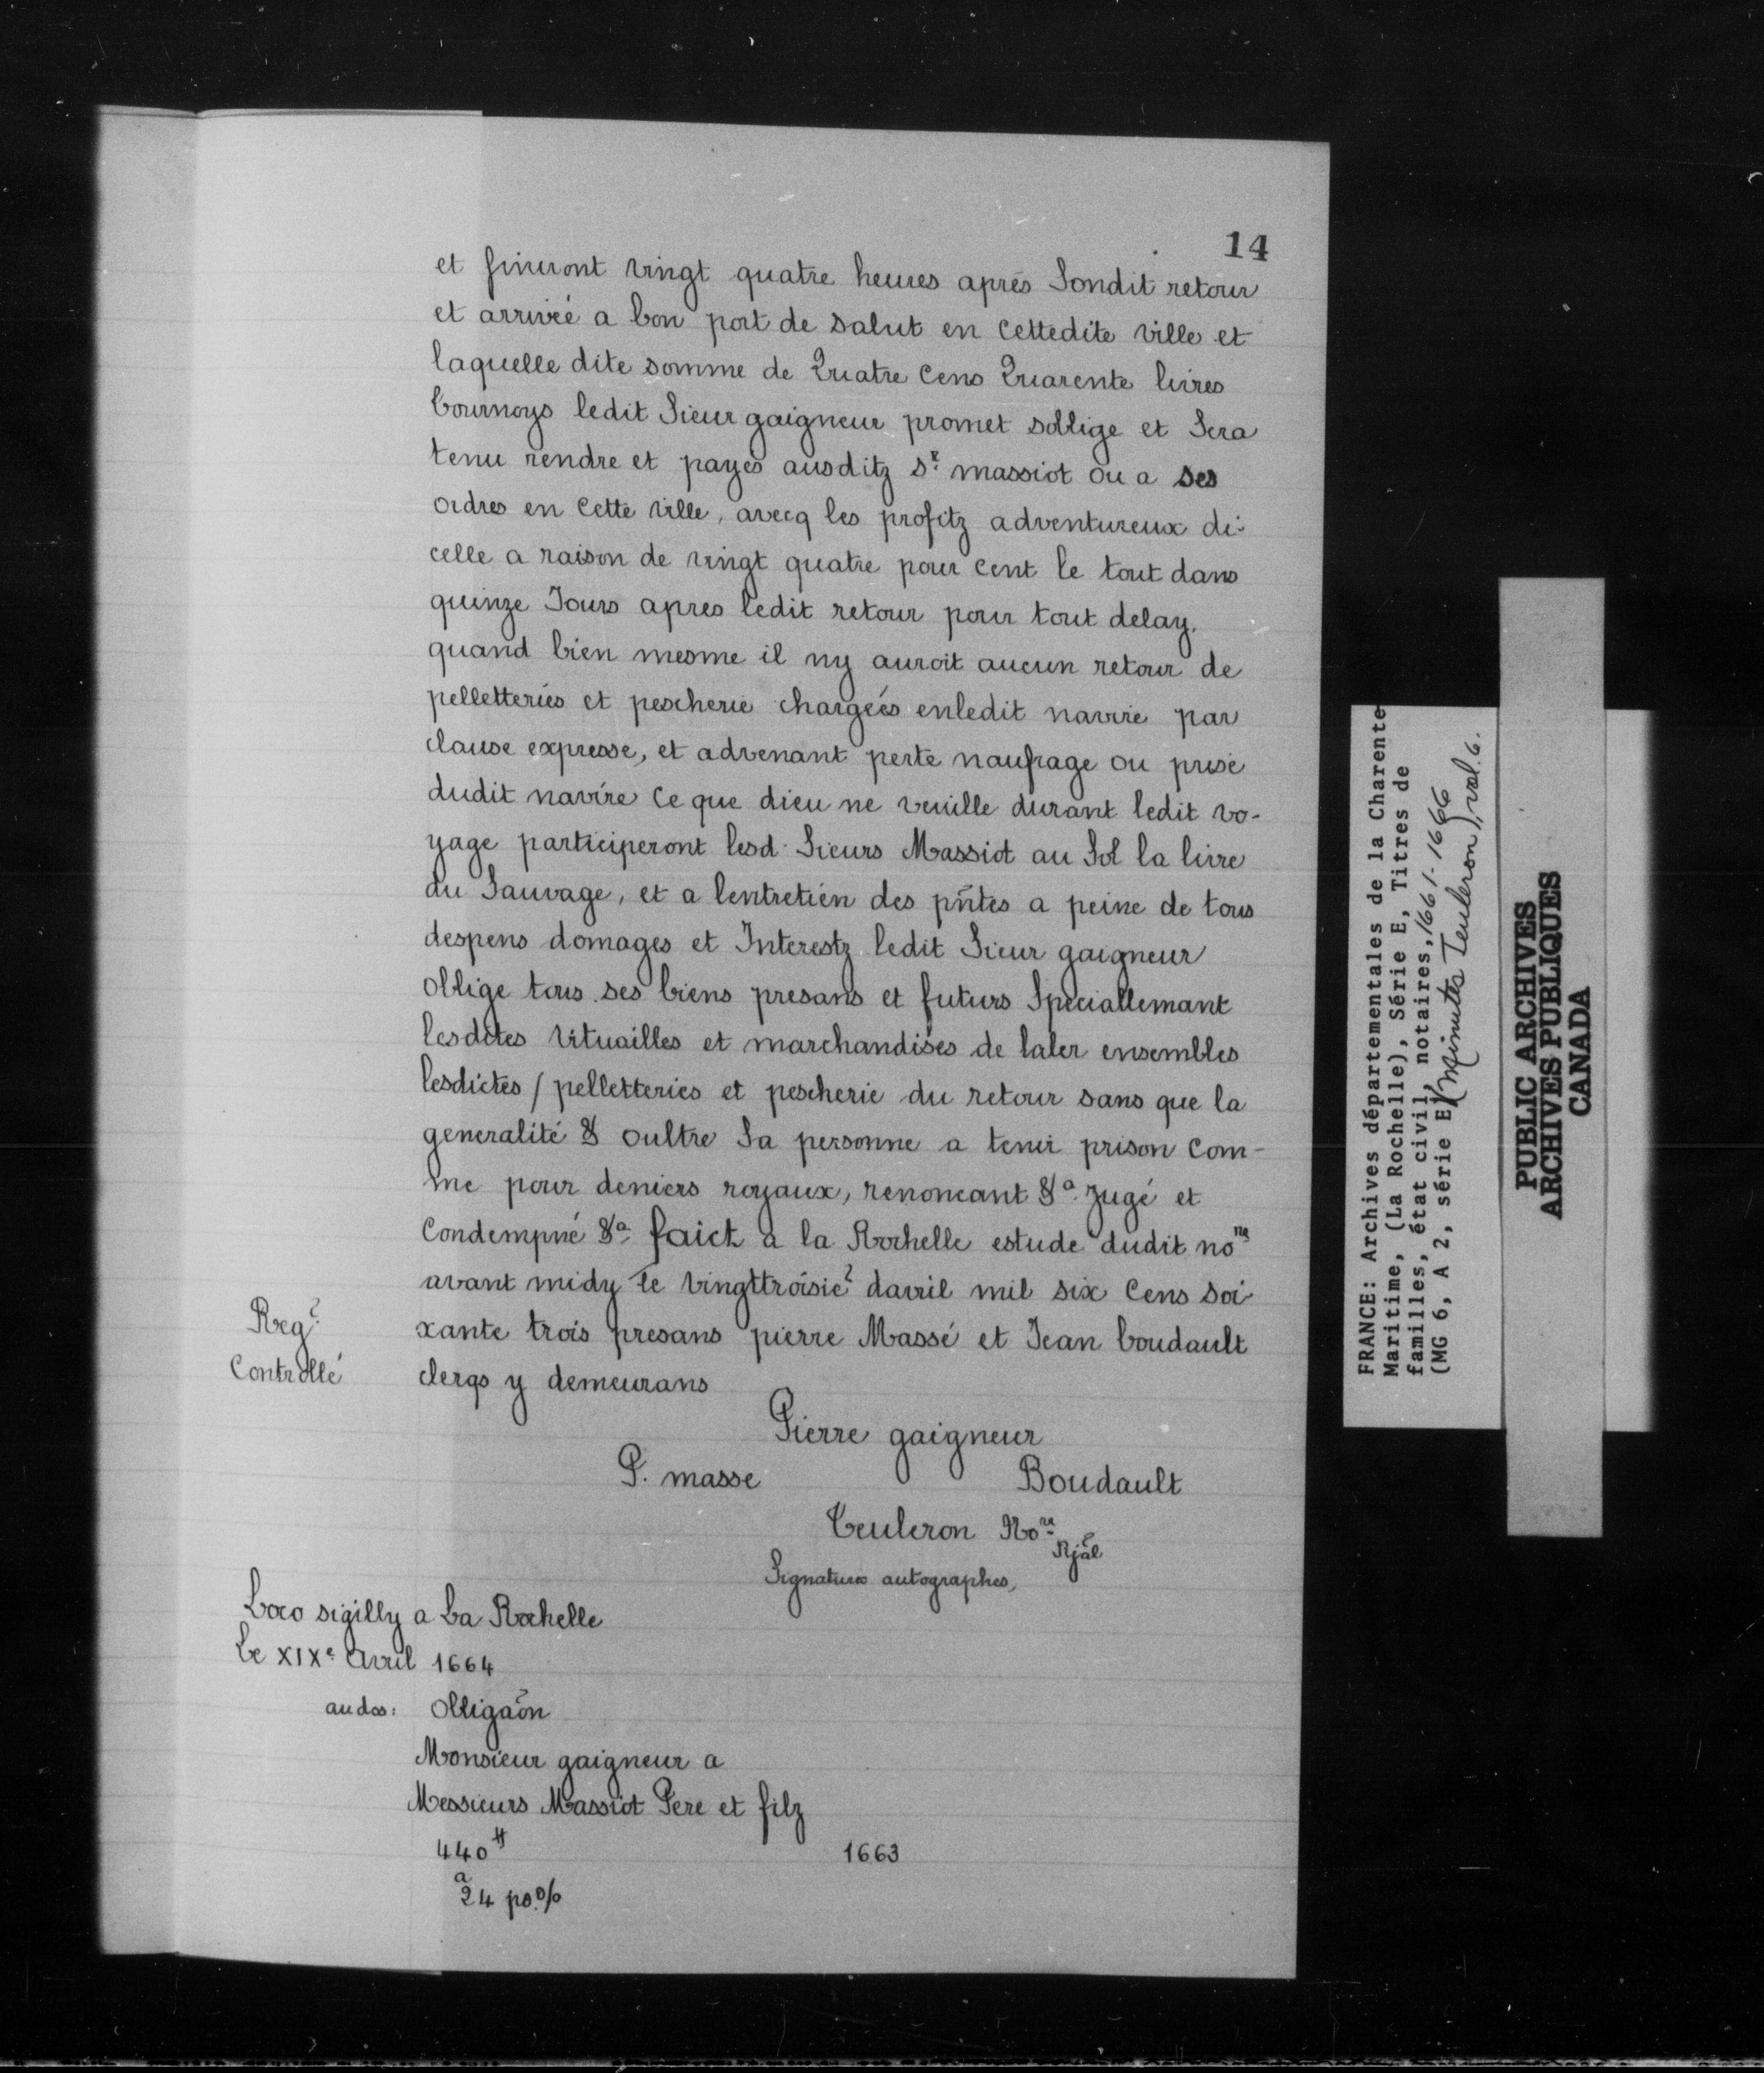 14
et finiront vingt quatre heures aprés Sondit retour
et arrivéé a bon port de salut en cettedite ville et
laquelle dite somme de Quatre Cens Quarente livres
tournoys ledit Sieur gaigneur promet soblige et Sera
tenu rendre et payes ausditz Sr. massiot ou a ses
ordres en cette ville, avecq les profitz adventureux di-
celle a raison de vingt quatre pour cent le tout dans
quinze Jours apres ledit retour pour tout delay.
quand bien mesme il ny auroit aucun retour de
pelletteriés et pescherie chargéés enledit navire par
clause expresse, et advenant perte naufrage ou prise
dudit navire Ce que dieu ne veuille durant ledit vo-
yage participeront lesd. Sieurs Massiot au Sol la livre
du Sauvage, et a lentretien des pñtes a peine de tous
despens domages et Interestz ledit Sieur gaigneur
oblige tous ses biens presans et futurs Speciallemant
lesdites Vituailles et marchandises de laler ensembles
lesdictes / pelletteries et pescherie du retour sans que la
generalité & oultre Sa personne a tenir prison com-
me pour deniers royaux, renoncant &a. Jugé et
Condempné &a. faict a la Rochelle estude dudit nore
avant midy le vingttroisie davril mil six Cens soi-
xante trois presans pierre Massé et Jean boudault
clergs y demeurans
Reg
Controllé
Pierre gaigneur
P. masse Boudault
Teuleron Nore Rjal
Signatures autographes,
Loco sigilly a La Rochelle
Le XIXe. Avril 1664
au dos: Obligaõn
Monsieur gaigneur a
Messieurs Massiot Pere et filz
440 # 1663
a 24 po. %
FRANCE: Archives départementales de la Charente
Maritime, (La Rochelle), Série E, Titres de
familles, état civil, notaires, 1661-1666
(MG 6, A 2, série E) (Minutes Teuleron), vol. 6.
PUBLIC ARCHIVES
ARCHIVES PUBLIQUES
CANADA